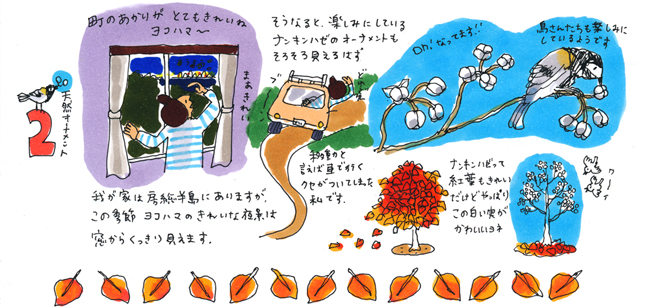 2
天然オーナメント
町のあかりが とてもきれいね
ヨコハマ〜
まあきれい
我が家は房総半島にありますが、
この季節 ヨコハマのきれいな夜景は
窓からくっきり見えます。
そうなると、楽しみにしている
ナンキンハゼのオーナメントも
そろそろ見えるはず
移動と
言えば車で行く
クセがついてしまった
私です。
Oh! なってます!!
鳥さんたちも楽しみに
しているようです
ナンキンハゼって
紅葉もきれい
だけどやっぱり
この白い実が
かわいいヨネ